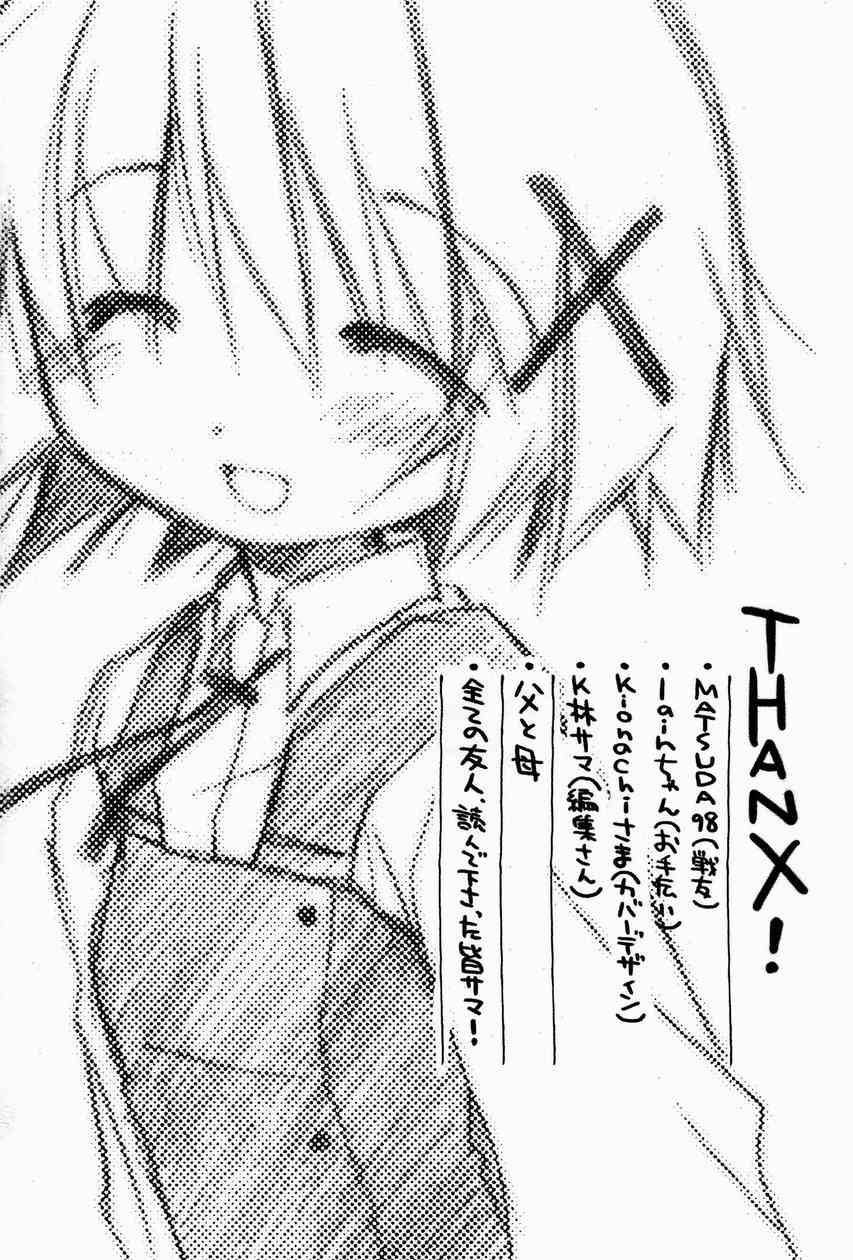 THANX!
・MATSUDA98(戦友)
・lainちゃん(お手伝い)
・KionaChiさま(カバーデザイン)
・K林サマ(編集さん)
・父と母
・全ての友人、読んで下さった皆サマ!